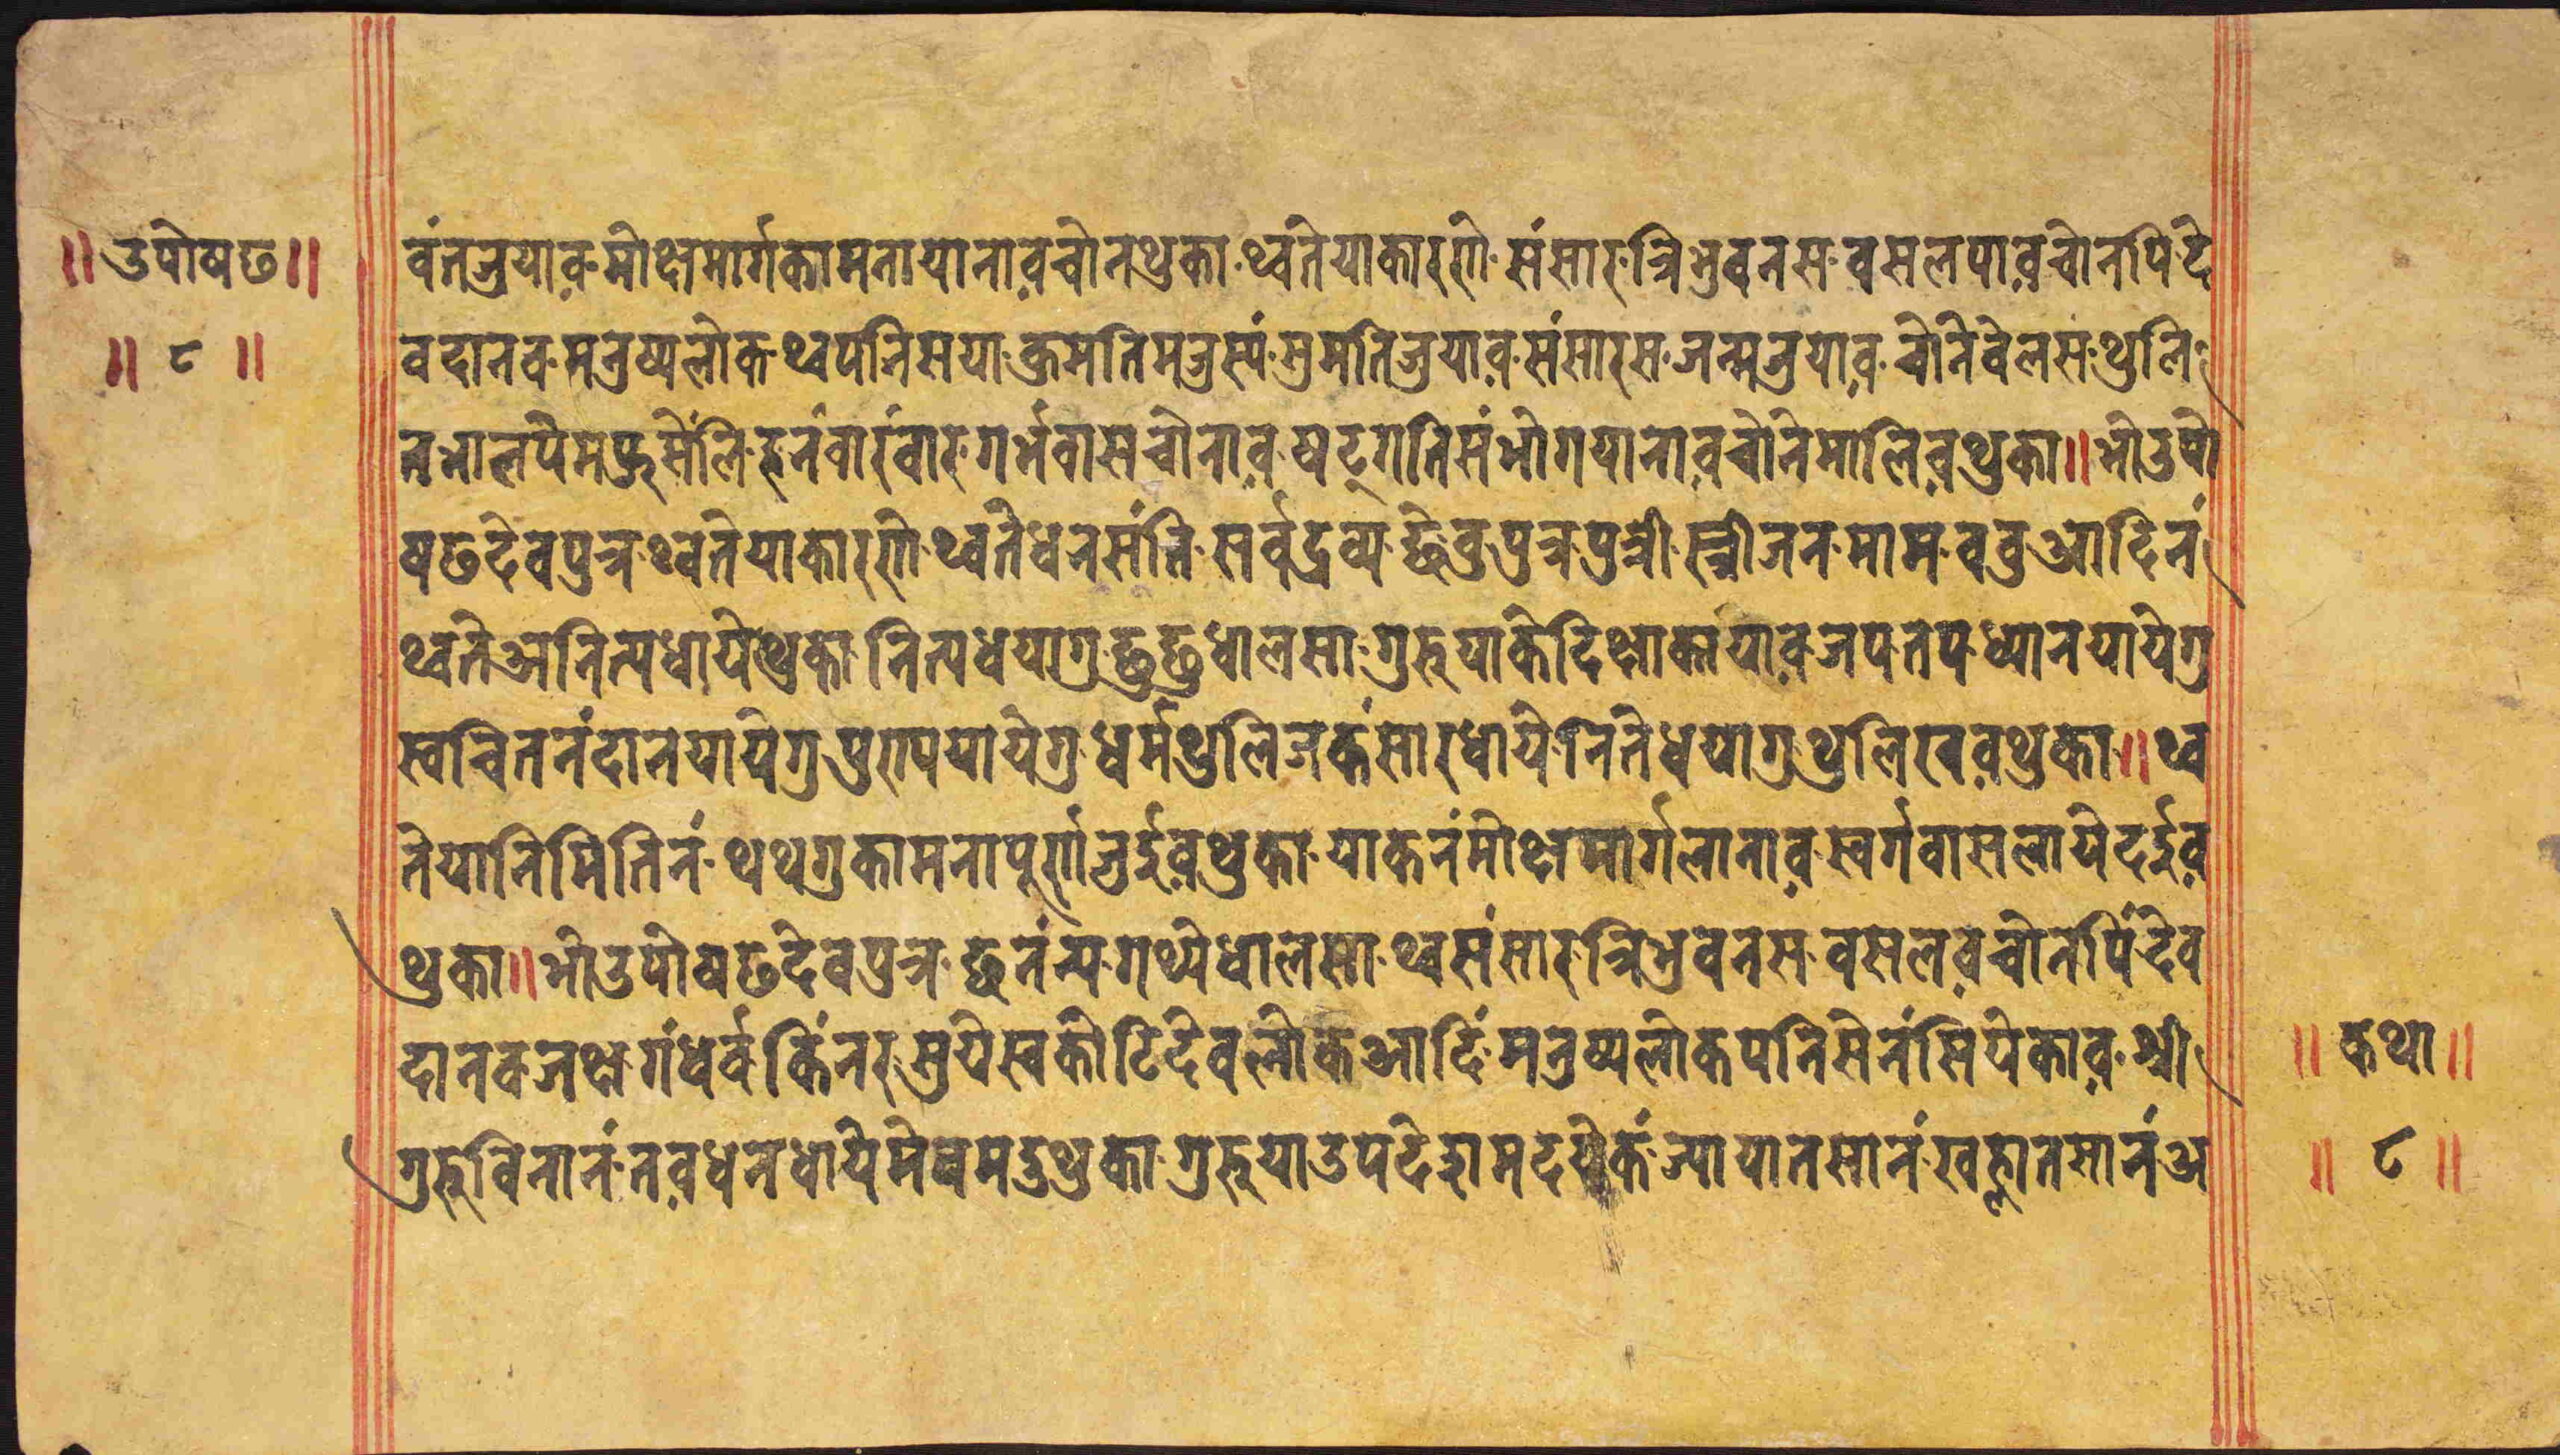 ॥ उपोषढ ॥
॥ ८ ॥
वंतजुयाव़·मोक्षमार्गकामनायानाव़चोनथुका·थ्वतेयाकारणे·संसार·त्रिभुवनस·वसलपाव़चोनपिं·दे
वदानव·मनुष्यलोक·थ्वपनिसया·कुमतिमजुस्यं·सुमतिजुयाव़·संसारस·जन्मजुयाव़·चोनेवेलस·थुलि
नभालपेमफुसेंलि·हनंवारंवार·गर्भवासचोनाव़·षट्गतिसंभोगयानाव़चोनेमालिव़थुका॥भोउपो
षढदेवपुत्र·थ्वतेयाकारणे·थ्वतेधनसंति·सर्वद्रव्य·छेंवु·पुत्र·पुत्री·स्त्रीजन·माम·ववुआदिनं
थ्वतेअनित्यधायेथुका·नित्यधयागु·छुछुधालसा·गुरुयाकेदिक्षाकायाव़·जप·तप·ध्यानयायेगु
स्वचितनंदानयायेगु·पुण्ययायेगु·धर्मथुलिजकंसारधाये·नितेधयागु·थुलिखव़थुका॥थ्व
तेयानिमितिनं·थथगुकामनापूर्णजुईव़थुका·याकनंमोक्षमार्गलानाव़·स्वर्गवासलायेदईव़
थुका॥भोउपोषढदेवपुत्र·छनंन्य·गथ्येधालसा·थ्वसंसार·त्रिभुवनस·वसलव़चोनपिं·देव
दानव·जक्ष·गंधर्व·किंनर·सुयेस्वकोटिदेवलोकआदिं·मनुष्यलोकपनिसेनंसियेकाव़·श्री
गुरुविनानं·नव़धनधायेमेवमदुथुका·गुरुयाउपदेशमदयेकं·ज्यायातसानं·खह्लातसानं·अ
॥ कथा ॥
॥ ८ ॥